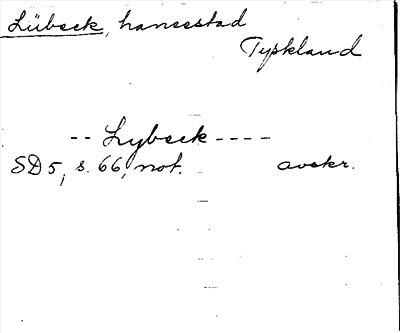 Lübeck, hansestad
Tyskland
-- Lybeck ----
SD 5, s. 66, not. avskr.